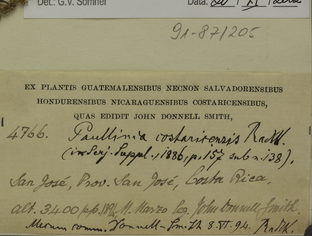 Det.: G.V. Somner Data:
91-87/205
EX PLANTIS GUATEMALENSIBUS NECNON SALVADORENSIBUS
HONDURENSIBUS NICARAGUENSIBUS COSTARICENSIBUS,
QUAS EDIDIT JOHN DONNELL SMITH,
4766. Paullinia costaricensis Radlk.
(in Serj. Suppl., 1886, p. 157 sub n. 138).
San José, Prov. San José, Costa Rica,
alt. 3400 p. M. Marzo Leg. John Donnell Smith.
comm. Donnell-Smith 3. VI. 94. Radlk.